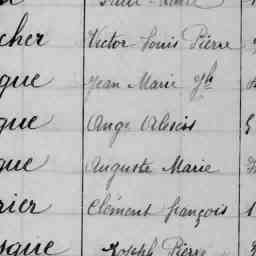 cher Victor Louis Pierre
que Jean Marie Jh
que Ange Alexis
que Auguste Marie
rier Clément François
sque Joseph Pierre